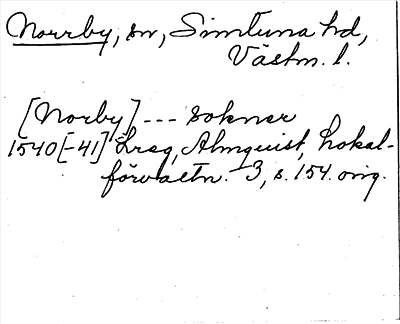 Norrby, sn, Simtuna hd,
Västm. l.
[Norby] --- sokner
1540[-41] Lreg, Almquist, Lokal-
förvaltn. 3, s. 154. orig.